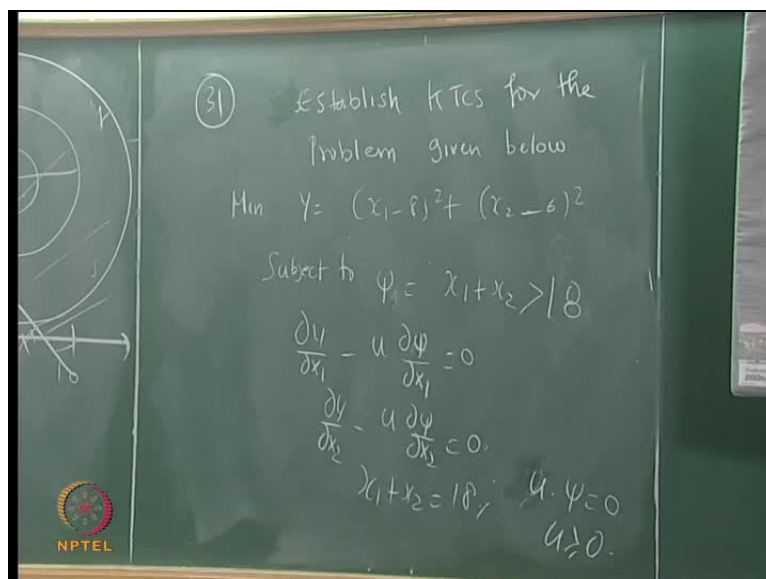 31 Establish KTCs for the
Problem given below
Min Y = (x₁ - 8)² + (x₂ - 6)²
Subject to ψ = x₁ + x₂ > 18
∂y/∂x₁ - u ∂ψ/∂x₁ = 0
∂y/∂x₂ - u ∂ψ/∂x₂ = 0.
x₁ + x₂ = 18; u.ψ = 0
u ≥ 0.
NPTEL